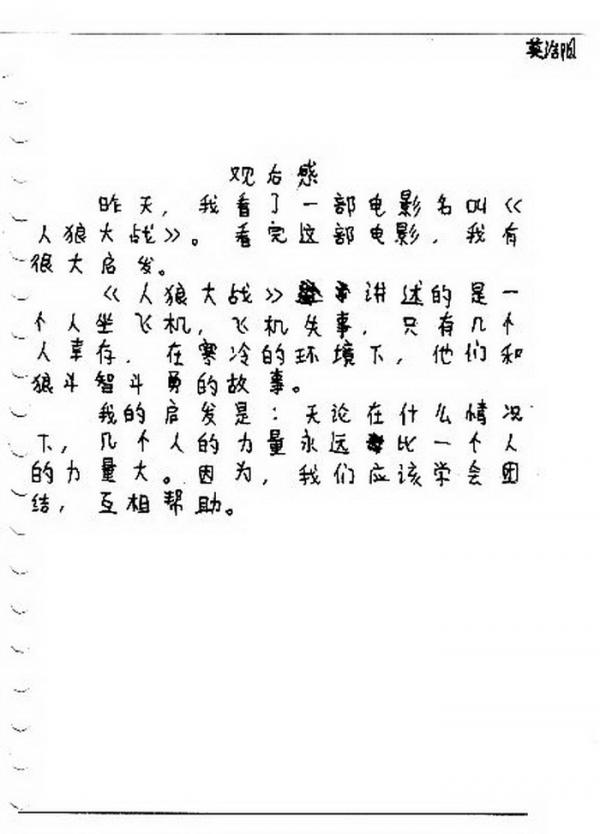 观后感
昨天，我看了一部电影名叫《
人狼大战》。看完这部电影，我有
很大启发。
《人狼大战》讲述的是一
个人坐飞机，飞机失事，只有几个
人幸存，在寒冷的环境下，他们和
狼斗智斗勇的故事。
我的启发是：无论在什么情况
下，几个人的力量永远比一个人
的力量大。因为，我们应该学会团
结，互相帮助。